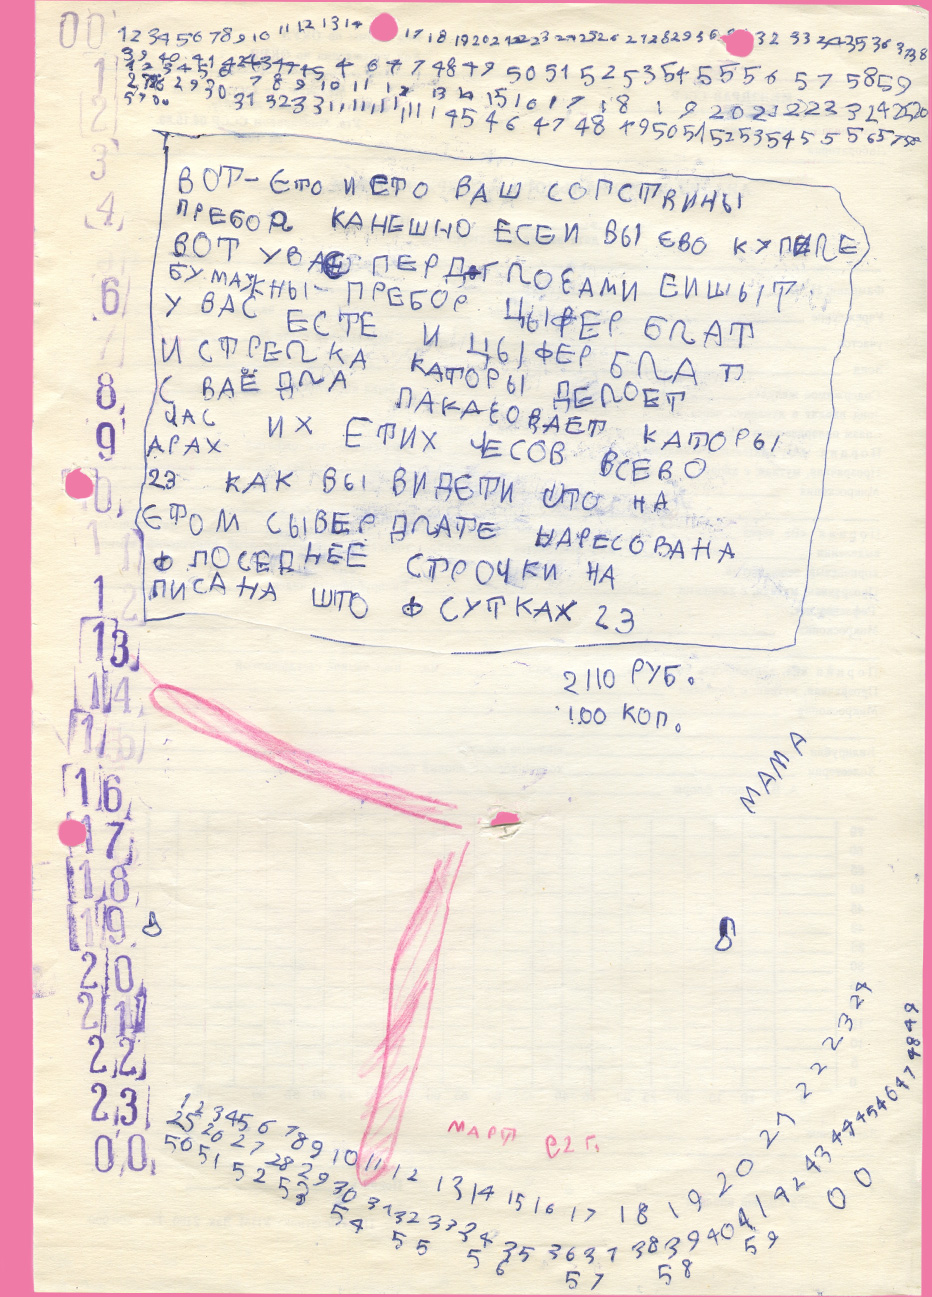 00
1
2
3
4
6
7
8
9
0
1
1
13
14
1
16
17
18
19
20
21
22
23
00
1 2 3 4 5 6 7 8 9 10 11 12 13 14 17 18 19 20 21 22 23 24 25 26 27 28 29 3 32 33 34 35 36 37 38
39 40 41 42 43 44 45 4 6 4 7 48 49 50 51 52 53 54 55 56 57 58 59
1 2 3 4 5 6 7 8 9 10 11 12 13 14 15 16 17 18 19 20 21 22 23 24 25 26
27 28 29 30 31 32 33 45 46 47 48 49 50 51 52 53 54 55 56 57 58
59 00
ВОТ-ЕТО И ЕТО ВАШ СОПСТВИНЫ
ПРЕБОР КАНЕШНО ЕСЕИ ВЫ ЄВО КУПЕЛЕ
ВОТ УВАС ПЕРД ГЛОЗАМИ ЕИШЫТ
БУМАЖНЫ- ПРЕБОР ЦЫФЕР БЛАТ
У ВАС ЕСТЕ И ЦЫФЕР БЛАТ
И СТРЕЛКА КАТОРЫ ДЕЛОЕТ
С ВАЁ ДЛА ПАКАЗОВАЕТ КАТОРЫ
ЧАС ИХ ЕТИХ ЧЕСОВ ВСЕВО
АРАХ
23 КАК ВЫ ВИДЕТИ ШТО НА
ЄТОМ СЫВЕР ДЛАТЕ НАРЕСОВАНА
Ф ПОСЕДНЕЕ СТРОЧКИ НА
ПИСАНА ШТО Ф СУТКАХ 23
2110 РУБ.
100 КОП.
МАМА
8
8
МАРТ 82 Г.
1 2 3 4 5 6 7 8 9 10 11 12 13 14 15 16 17 18 19 20 21 22 23 24
25 26 27 28 29 30 31 32 33 34 35 36 37 38 39 40 41 42 43 44 45 46 47 48 49
50 51 52 53 54 55 56 57 58 59 00